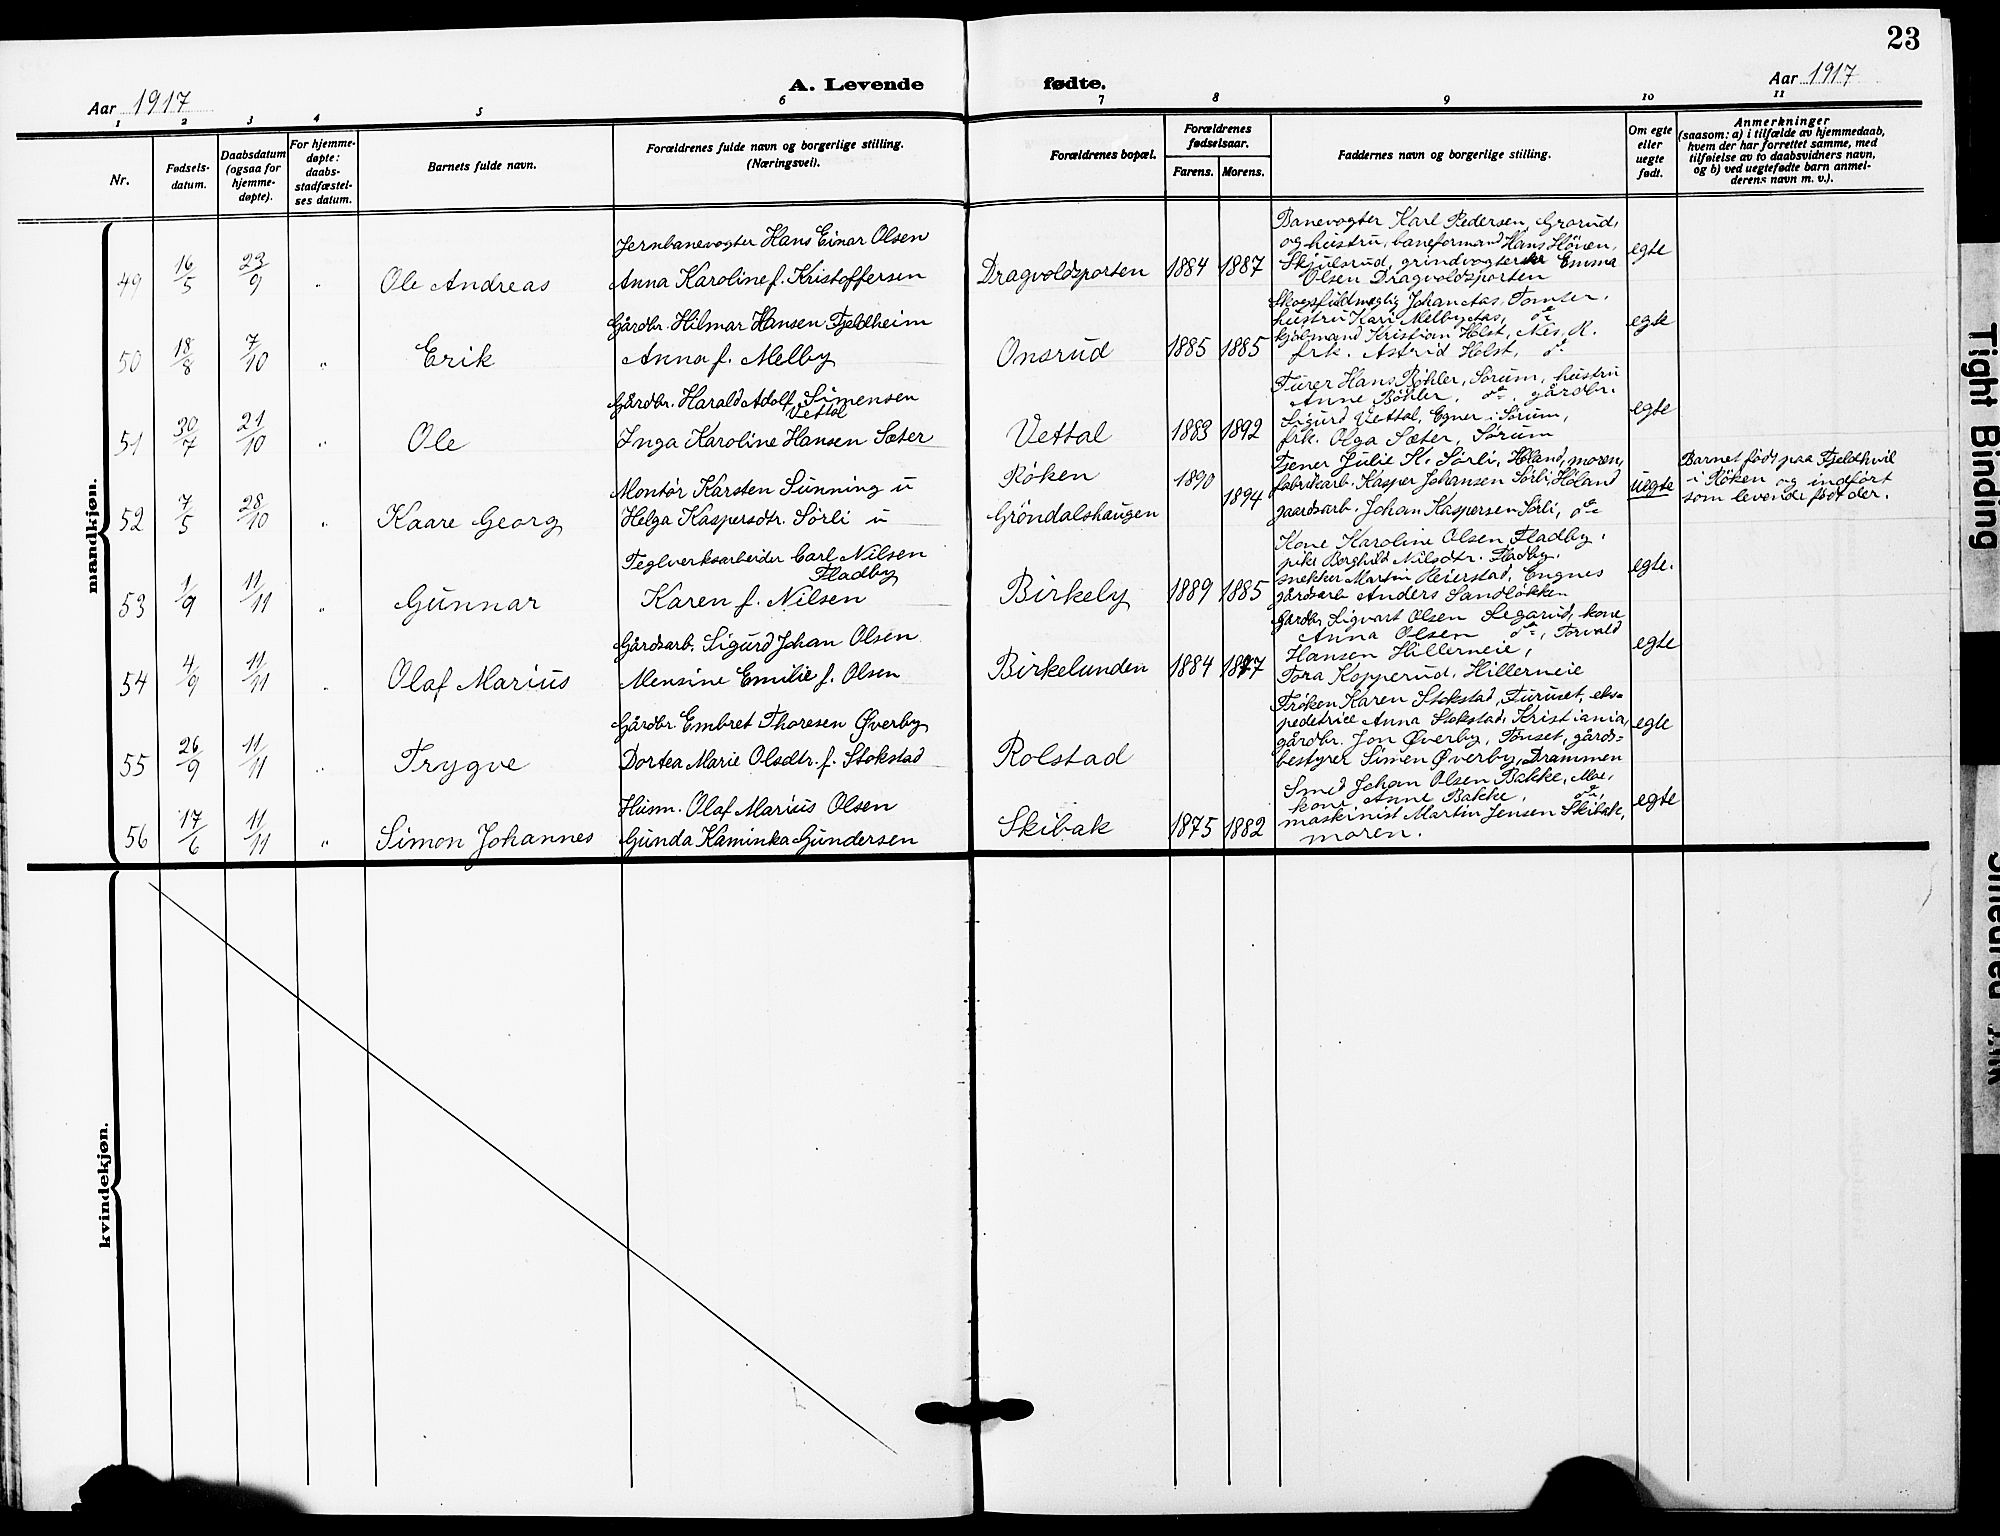 23
A. Levende fødte.
Aar 1917
Aar 1917
1 2 3 4 5 6 7 8 9 10 11
Nr.
Fødsels-
datum.
Daabsdatum
(ogsaa for
hjemme-
døpte).
For hjemme-
døpte:
daabs-
stadfæstel-
ses datum.
Barnets fulde navn.
Forældrenes fulde navn og borgerlige stilling.
(Næringsvei).
Forældrenes bopæl.
Forældrenes
fødselsaar.
Farens. Morens.
Faddernes navn og borgerlige stilling.
Om egte
eller
uegte
født.
Anmerkninger
(saasom: a) i tilfælde av hjemmedaab,
hvem der har forrettet samme, med
tilføielse av to daabsvidners navn,
og b) ved uegtefødte barn anmel-
derens navn m. v.).
mandkjøn.
49 16/5 23/9 " Ole Andreas
Jernbanevogter Hans Einar Olsen
Anna Karoline f. Kristoffersen
Dragvoldsporten 1884 1887
Banevogter Karl Pedersen, Grorud,
og hustru, baneformand Hans Hönen,
Skjulsrud, grindvogterske Emma
Olsen Dragvoldsporten
egte
50 18/8 7/10 " Erik
Gårdbr. Hilmar Hansen Fjeldheim
Anna f. Melby
Onsrud 1885 1885
Johan Aas, Tomter.
hustru Kari Melby Aas, do
Kristian Holst, Nes, R.
frk. Astrid Holst, do
egte
51 30/7 21/10 " Ole
Gårdbr. Harald Adolf Simensen
Vettal
Inga Karoline Hansen Sæter
Vettal 1883 1892
Furer Hans Böhler, Sörum, hustru
Anne Böhler, do, gårdbr.
Sigurd Vettal, Egner i Sörum,
frk. Olga Sæter, Sörum
egte
52 7/5 28/10 " Kaare Georg
Montör Karsten Sunning u
Helga Kaspersdtr. Sörli u
Röken
Gröndalshaugen
1890 1894
Tjener Julie K. Sörli, Höland, moren,
fabrikarb. Kasper Johansen Sörli, Höland
gaardsarb. Johan Kaspersen Sörli, do
uegte
Barnet födt paa Fjeldhvil
i Röken og indfört
som levende födt der.
53 1/9 11/11 " Gunnar
Teglverksarbeider Carl Nilsen
Fladby
Karen f. Nilsen
Birkely 1889 1885
Kone Karoline Olsen Fladby,
pike Borghild Nilsdtr. Fladby,
snekker Martin Reierstad, Engnes
gårdsarb Anders Sandlökken
egte.
54 4/9 11/11 " Olaf Marius
Gårdsarb. Sigurd Johan Olsen
Mensine Emilie f. Olsen
Birkelunden 1884
Gårdbr. Sigvart Olsen Segarud, kone
Anna Olsen do, Torvald
Hansen Hillerneie,
Tora Kopperud, Hillerneie
egte
55 26/9 11/11 " Trygve
Gårdbr. Embret Thoresen Øverby
Dortea Marie Olsdtr. f. Stokstad
Rolstad
Fröken Karen Stokstad, Furuset, eks-
peditrice Anna Stokstad, Kristiania,
gårdbr. Jon Øverby, Tönset, gårds-
bestyrer Simen Øverby, Drammen
egte
56 17/6 11/11 " Simon Johannes
Husm. Olaf Marius Olsen
Gunda Kaminka Gundersen
Skibak 1875 1882
Smed Johan Olsen Bakke, Moe,
kone Anne Bakke, do,
maskinist Martin Jensen Skibak,
moren.
egte
kvindekjøn.
Tight Binding